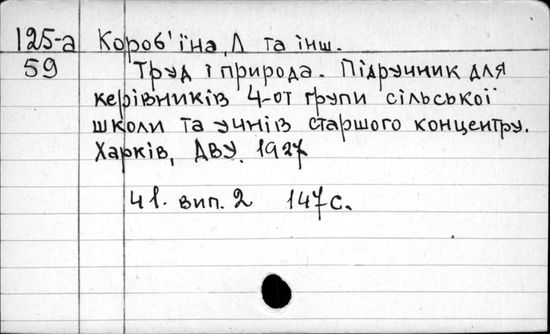 125-а Короб'їна, Л та інш.
59 Труд і природа. Підручник для
керівників 4-от групи сільської
школи та учнів старшого концентру.
Харків, ДВУ. 1927
ч1. вип. 2 147с.